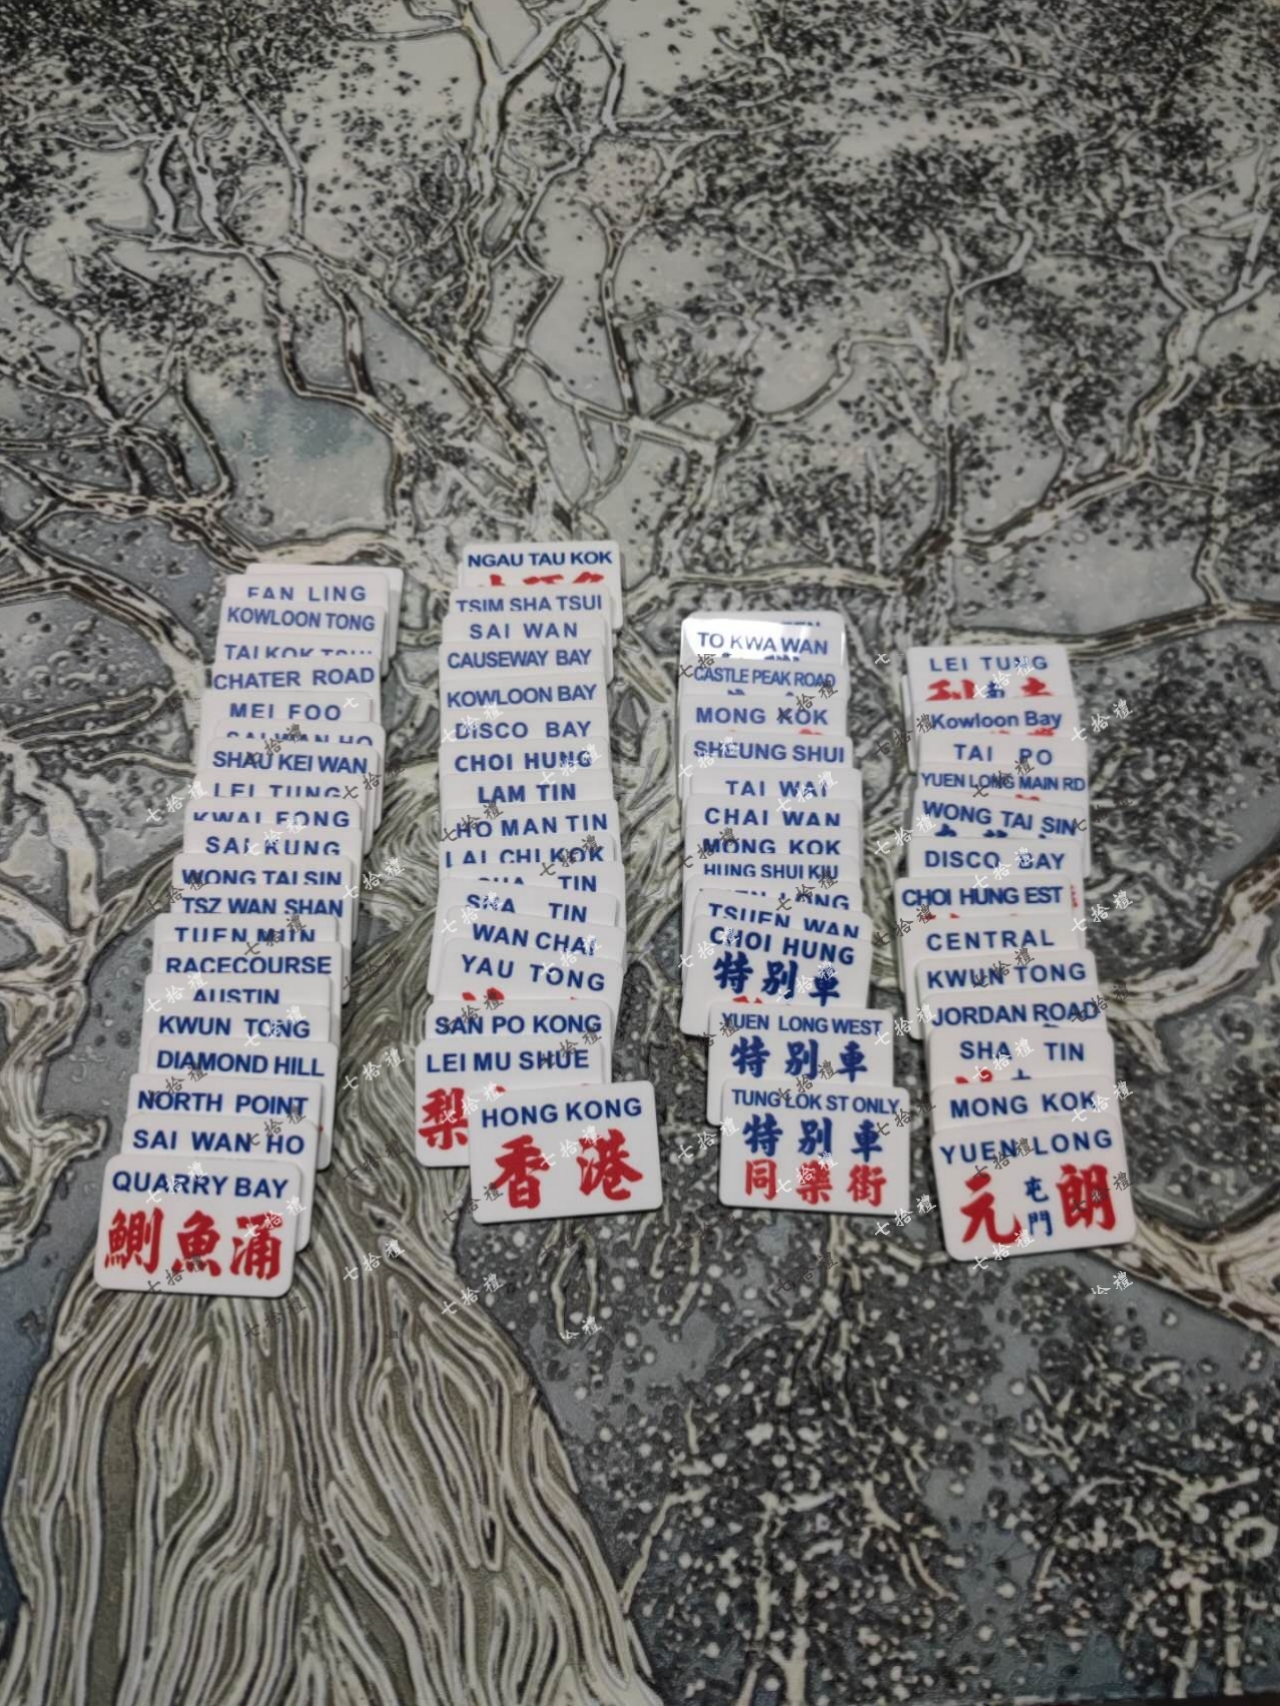 FAN LING
KOWLOON TONG
CHATER ROAD
MEI FOO
SAI WAN HO
SHAU KEI WAN
LEI TUNG
KWAI FONG
SAI KUNG
WONG TAI SIN
TSZ WAN SHAN
TUEN MUN
RACECOURSE
AUSTIN
KWUN TONG
DIAMOND HILL
NORTH POINT
SAI WAN HO
QUARRY BAY
鰂魚涌
NGAU TAU KOK
TSIM SHA TSUI
SAI WAN
CAUSEWAY BAY
KOWLOON BAY
DISCO BAY
CHOI HUNG
LAM TIN
HO MAN TIN
LAI CHI KOK
SHA TIN
SHA TIN
WAN CHAI
YAU TONG
SAN PO KONG
LEI MU SHUE
梨
HONG KONG
香港
TO KWA WAN
CASTLE PEAK ROAD
MONG KOK
SHEUNG SHUI
TAI WAI
CHAI WAN
MONG KOK
HUNG SHUI KIU
TSUEN WAN
CHOI HUNG
特別車
YUEN LONG WEST
特別車
TUNG LOK ST ONLY
特別車
同樂街
LEI TUNG
Kowloon Bay
TAI PO
YUEN LONG MAIN RD
WONG TAI SIN
DISCO BAY
CHOI HUNG EST
CENTRAL
KWUN TONG
JORDAN ROAD
SHA TIN
MONG KOK
YUEN LONG
元屯門朗
七拾禮